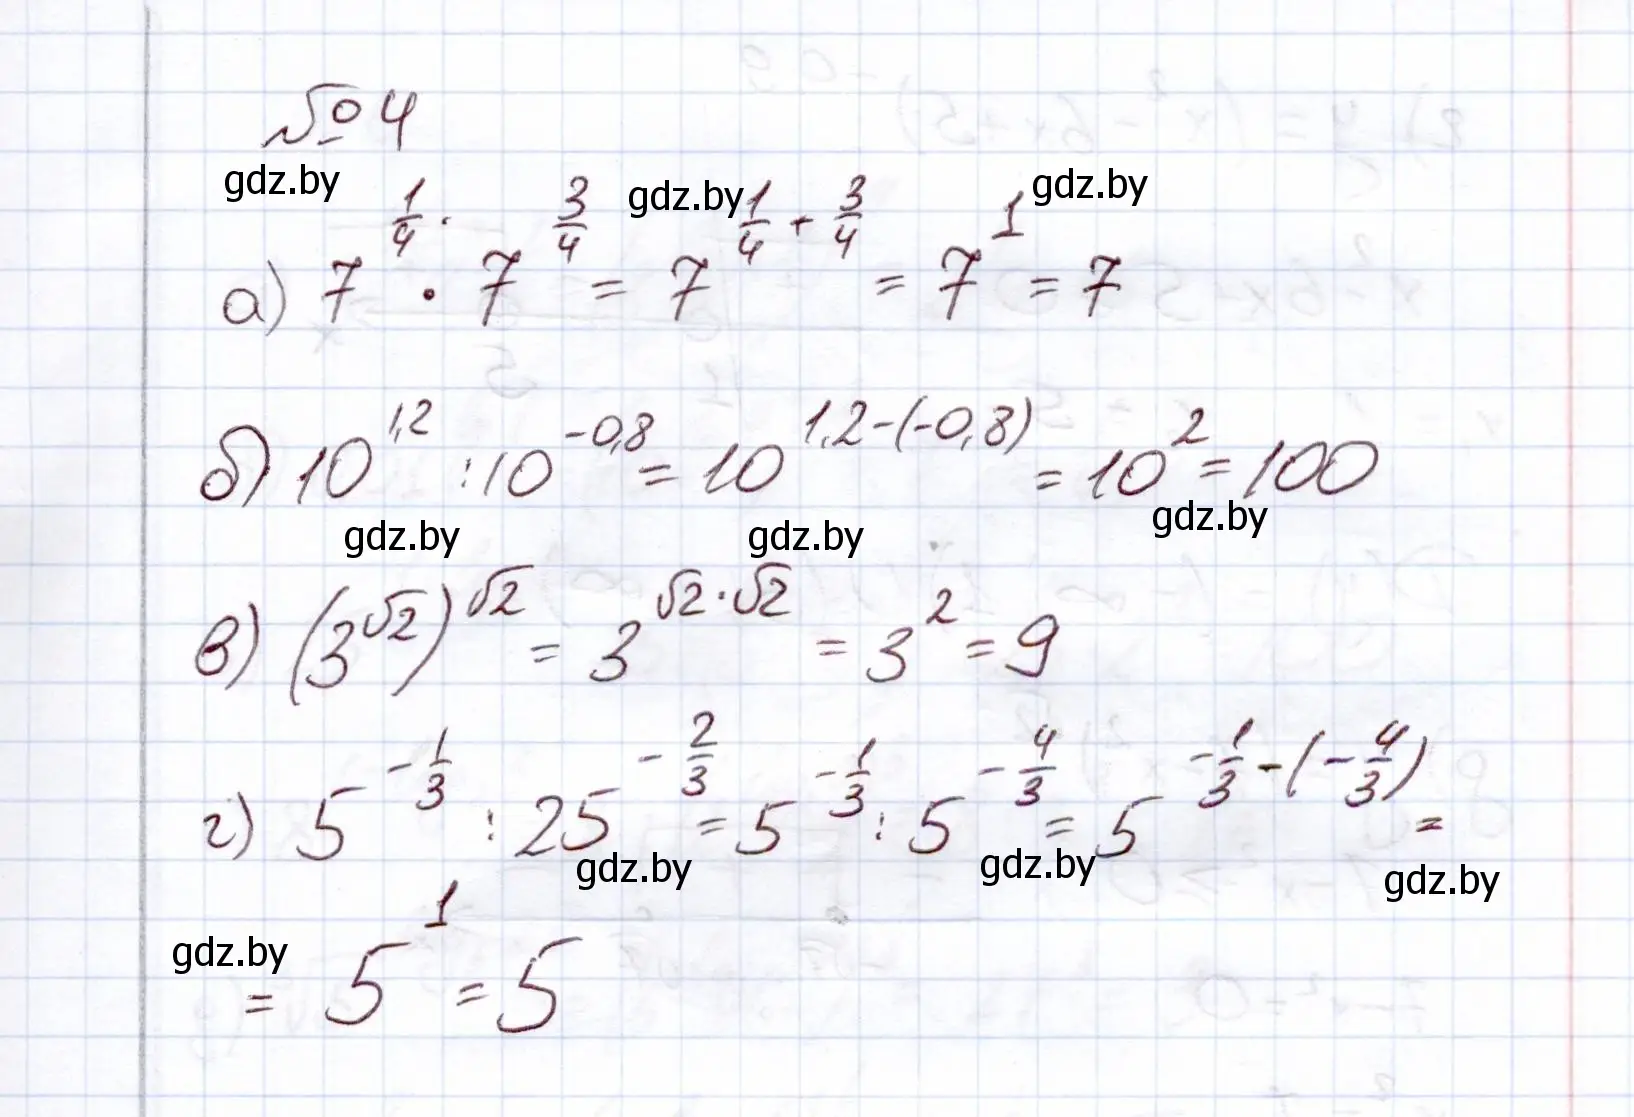 № 4
gdz.by gdz.by gdz.by
а) 7^(1/4) · 7^(3/4) = 7^(1/4 + 3/4) = 7^1 = 7
б) 10^(1,2) : 10^(-0,8) = 10^(1,2-(-0,8)) = 10^2 = 100
gdz.by gdz.by gdz.by
в) (3^(√2))^(√2) = 3^(√2·√2) = 3^2 = 9
г) 5^(-1/3) : 25^(-2/3) = 5^(-1/3) : 5^(-4/3) = 5^(-1/3-(-4/3)) =
gdz.by gdz.by gdz.by
gdz.by
= 5^1 = 5